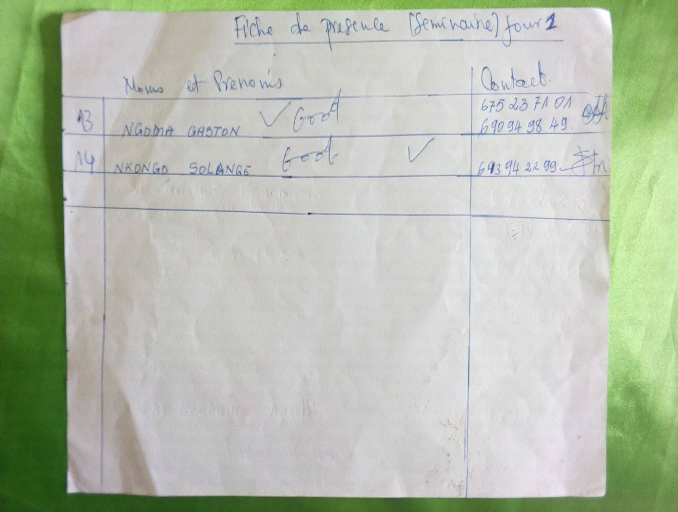 Fiche de presence (Seminaire) Jour 1
Noms et Prenoms Contact
13 NGOMA GASTON Good 675 23 71 01
690 94 98 49
14 NKONGO SOLANGE Good 693 94 22 99